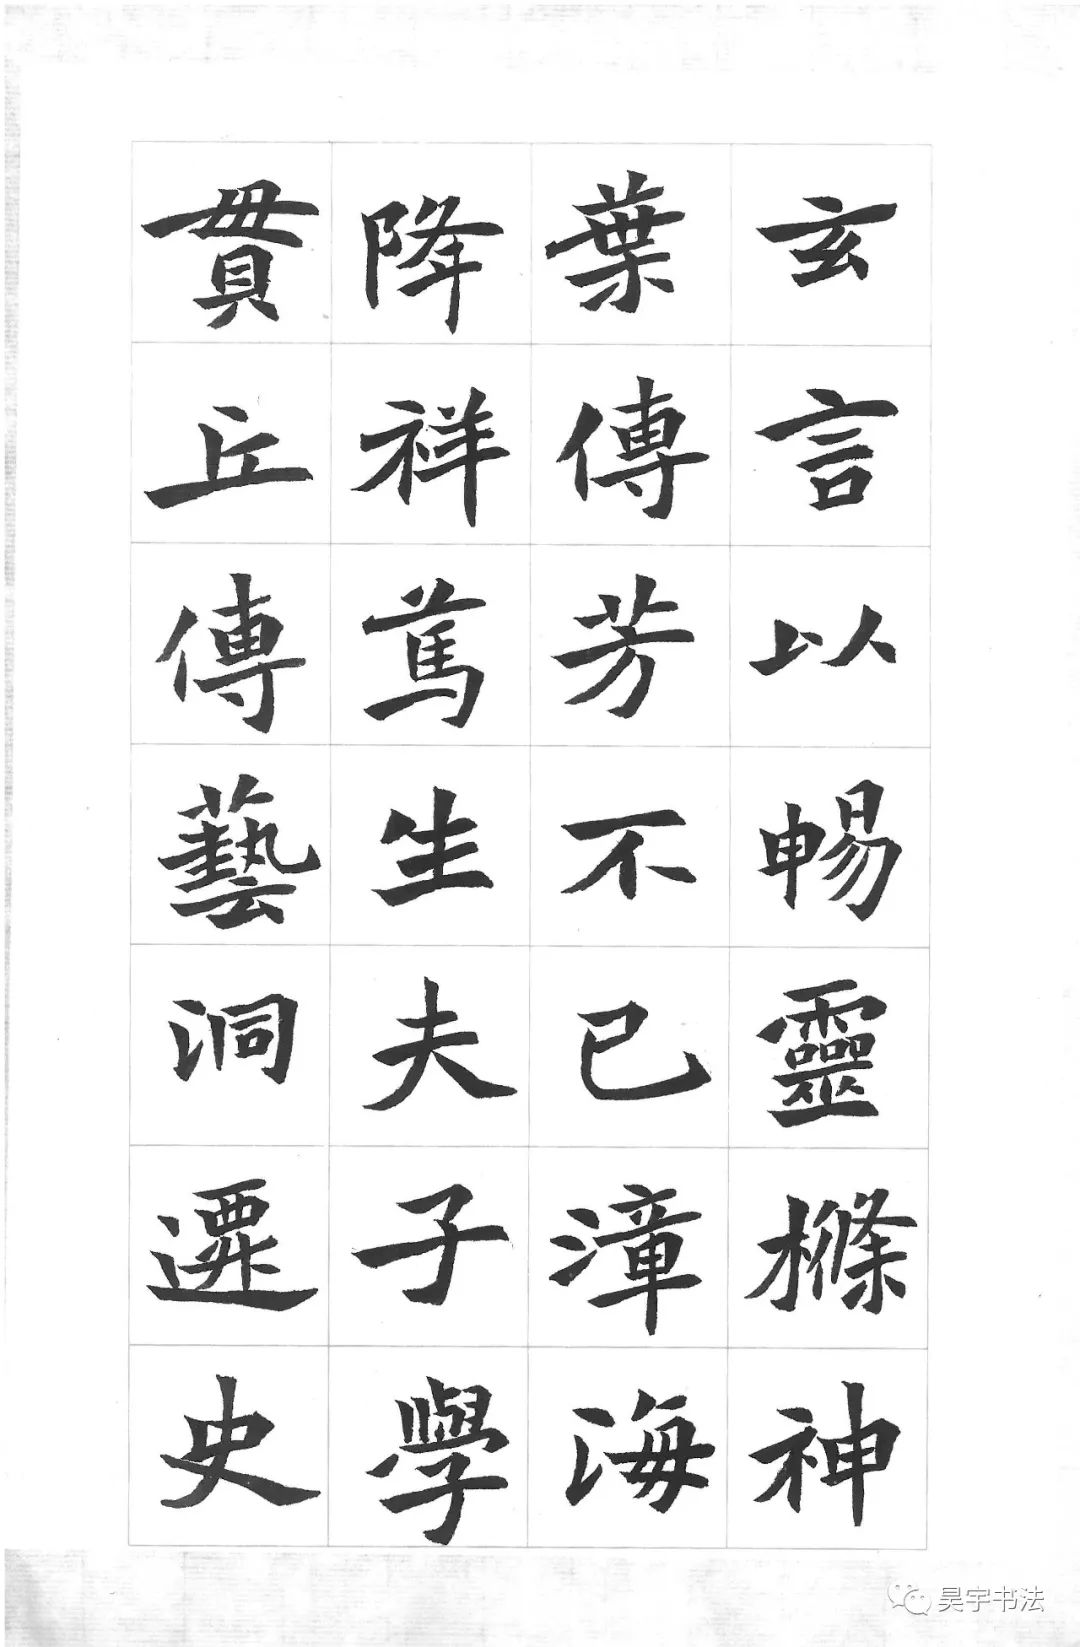 玄言以暢靈樤神
葉傳芳不已漳海
降祥篤生夫子學
貫丘傳藝洞遷史
昊宇书法